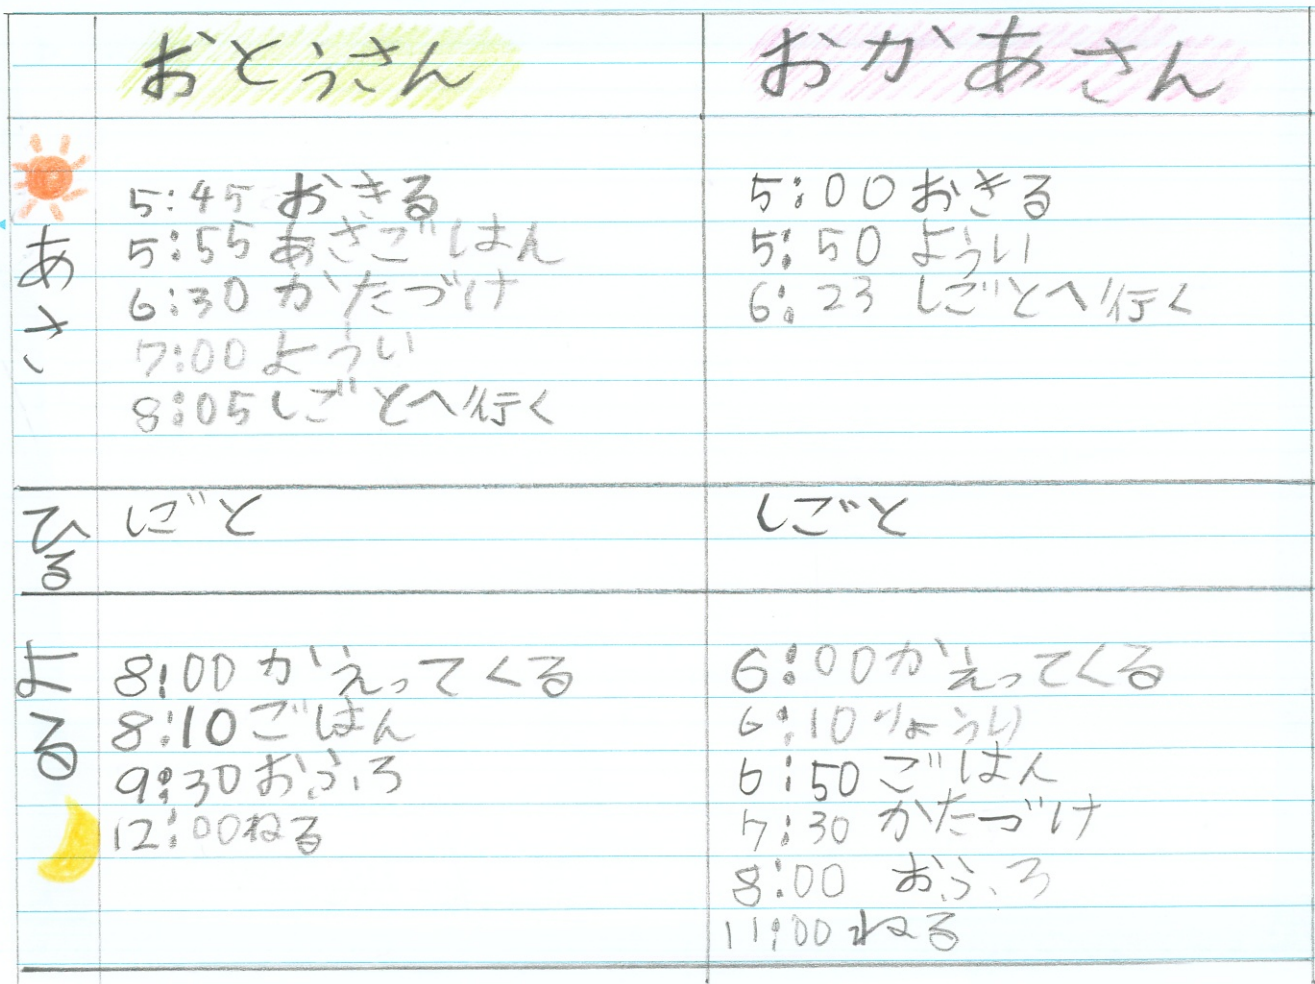 おとうさん
おかあさん
あさ
5:45 おきる
5:55 あさごはん
6:30 かたづけ
7:00 ようい
8:05 しごとへ行く
5:00 おきる
5:50 ようい
6:23 しごとへ行く
ひる
しごと
しごと
よる
8:00 かえってくる
8:10 ごはん
9:30 おふろ
12:00 ねる
6:00 かえってくる
6:10 りょうり
6:50 ごはん
7:30 かたづけ
8:00 おふろ
11:00 ねる